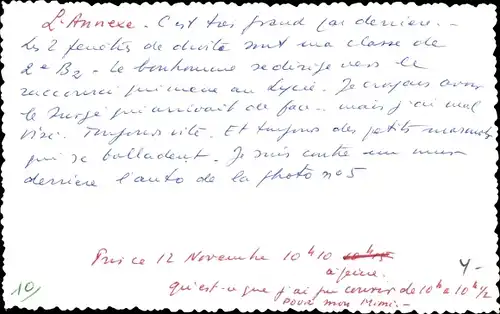 L'Annexe. C'est très grand par derrière. -
Les 2 fenêtes de droite sont ma classe de
2e B2 - Le bonhomme se dirige vers le
raccourci qui mène au Lycée. Je croyais avoir
le Surgé qui arrivait de face - mais j'ai mal
visé. Toujours vite. Et toujours des petits
qui se balladent. Je suis contre un mur
derrière l'auto de la photo n° 5
Pris ce 12 Novembre 10h10
à peine.
qu'est-ce que j'ai pu courir de 10h à 10h1/2
pour mon Mimi. -
10/